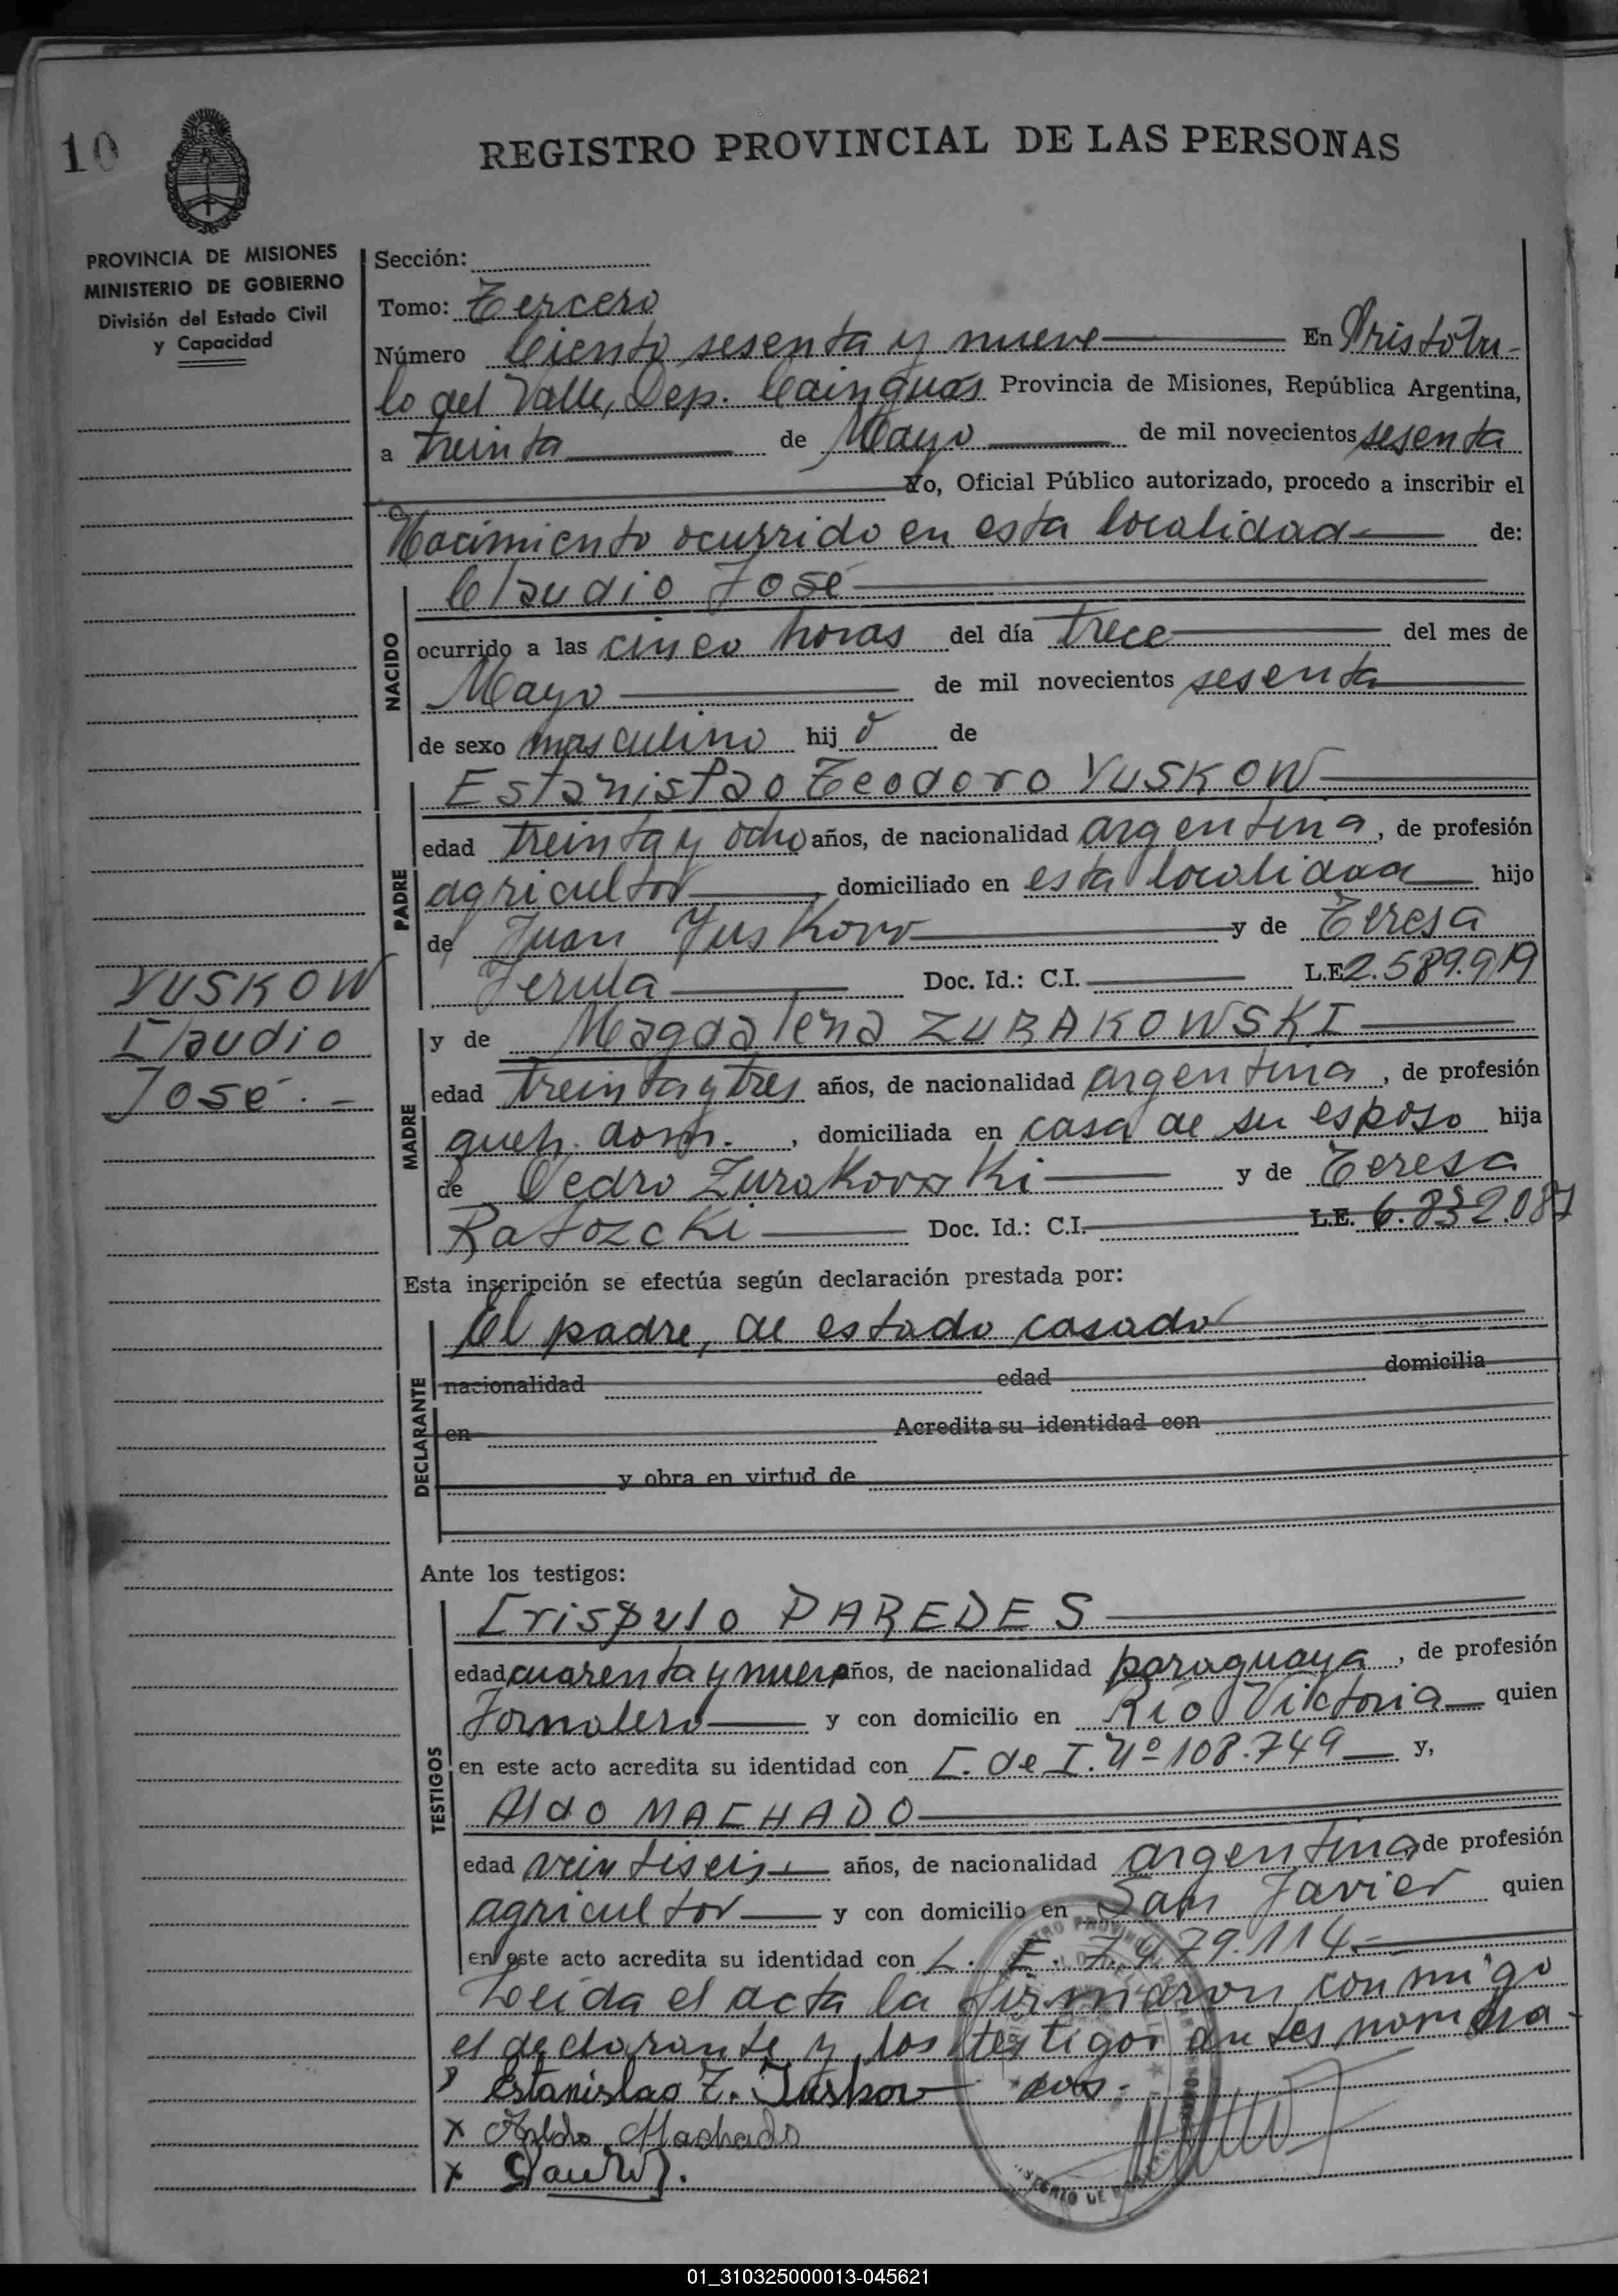 10
REGISTRO PROVINCIAL DE LAS PERSONAS
PROVINCIA DE MISIONES
MINISTERIO DE GOBIERNO
División del Estado Civil
y Capacidad
Sección:
Tomo: Tercero
Número Ciento sesenta y nueve En Aristóbu-
lo del Valle, Dep. Cainguás Provincia de Misiones, República Argentina,
a treinta de Mayo de mil novecientos sesenta
Yo, Oficial Público autorizado, procedo a inscribir el
Nacimiento ocurrido en esta localidad de:
NACIDO
Claudio José
ocurrido a las cinco horas del día trece del mes de
Mayo de mil novecientos sesenta
de sexo masculino hij o de
PADRE
Estanislao Teodoro YUSKOW
edad treinta y ocho años, de nacionalidad argentina, de profesión
agricultor domiciliado en esta localidad hijo
de Juan Yuskow y de Teresa
Doc. Id.: C.I. L.E 2.589.919
YUSKOW
Claudio
José.-
MADRE
y de Magdalena ZURAKOWSKI
edad treinta y tres años, de nacionalidad argentina, de profesión
queh. dom., domiciliada en casa de su esposo hija
de Pedro Zurakowski y de Teresa
Ratozcki Doc. Id.: C.I. L.E. 6.832.081
Esta inscripción se efectúa según declaración prestada por:
DECLARANTE
El padre, de estado casado
nacionalidad edad domicilia
en Acredita su identidad con
y obra en virtud de
Ante los testigos:
TESTIGOS
Crispulo PAREDES
edad cuarenta y nueve años, de nacionalidad paraguaya, de profesión
Jornalero y con domicilio en Río Viktoria quien
en este acto acredita su identidad con C. de I. Nº 108.749 y,
Aldo MACHADO
edad veintiseis años, de nacionalidad argentina de profesión
agricultor y con domicilio en San Javier quien
en este acto acredita su identidad con L. E. 7.479.114.-
Leida el acta la firmaron conmigo
el declarante y los testigos antes nombra-
Estanislao T. Juskow dos.-
x Aldo Machado
x
01_310325000013-045621